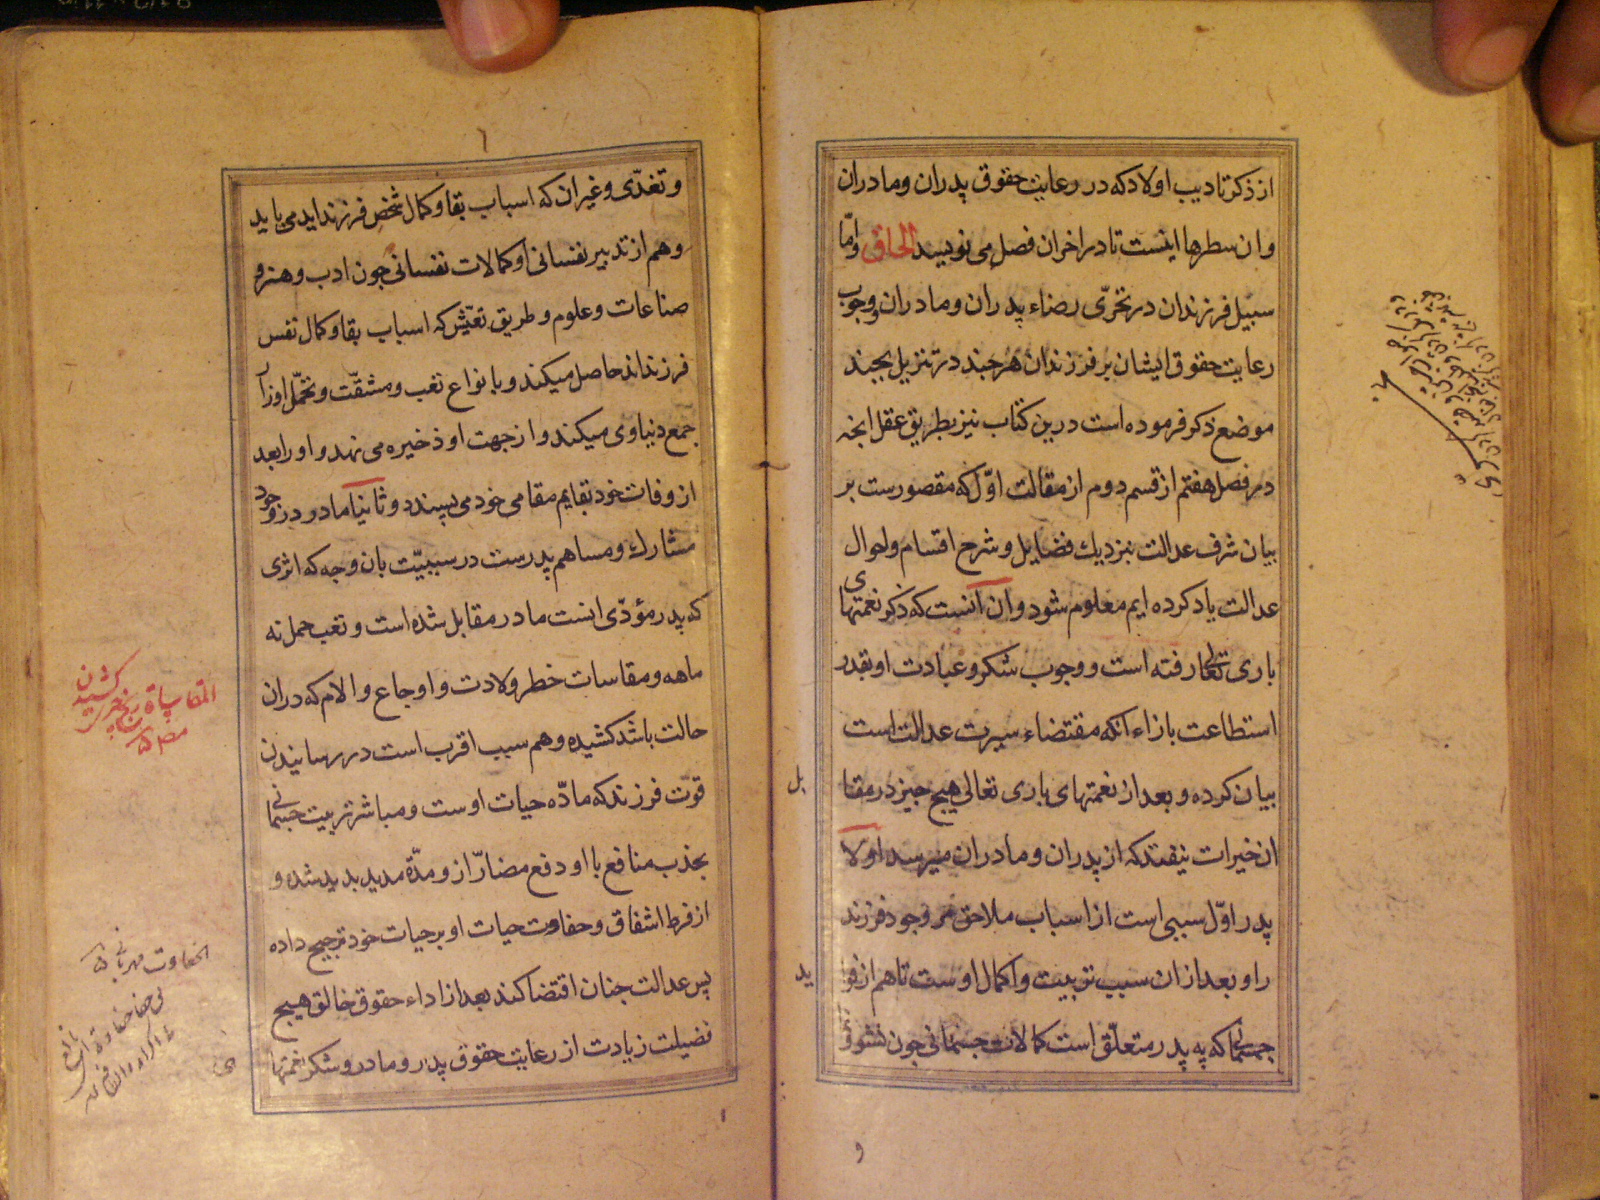 از ذکر تادیب اولاد که در رعایت حقوق پدران و مادران
وان سطرها اینست تا در اخر ان فصل می نویسند الحاق وامّا
سبیل فرزندان در تحرّی رضاء پدران و مادران و وجوب
رعایت حقوق ایشان بر فرزندان هر جند در تنزیل بجند
موضع ذکر فرموده است درین کتاب نیز بطریق عقل انجه
در فصل هفتم از قسم دوم از مقالت اوّل که مقصورست بر
بیان شرف عدالت بنزدیك فضایل و شرح اقسام و احوال
عدالت یاد کرده ایم معلوم شود وان آنست که ذکر نعمتهای
باری تعالی رفته است و وجوب شکر و عبادت او بقدر
استطاعت بازاء انکه مقتضاء سیرت عدالت است
بیان کرده و بعد از نعمتهای باری تعالی هیج جیز در مقا
بل
ان خیرات نیفتد که از پدران و مادران میرسد اولا
پدر اوّل سببی است از اسباب ملاحق مر وجود فرزند
را و بعد از ان سبب تربیت و اکمال اوست تا هم از فوا
ید
جسمانی که به پدر متعلّق است کمالات جسمانی جون نشو و
و
و تغدّی و غیر ان که اسباب بقا و کمال شخص فرزنداند می یابد
وهم از تدبیر نفسانی او کمالات نفسانی جون ادب و هنر و
صناعات و علوم و طریق تعیّش که اسباب بقا و کمال نفس
فرزنداند حاصل میکند و بانواع تعب و مشقّت و تحمّل اوزار
جمع دنیاوی میکند و از جهت او ذخیره می نهد و او را بعد
از وفات خود بقایم مقامی خود می پسندد و ثانیا مادر در وجود
مشارك و مساهم پدرست در سببیّت بان وجه که اثری
که پدر مؤدّی انست مادر مقابل شده است و تعب حمل نه
ماهه و مقاسات خطر ولادت و اوجاع و الام که دران
حالت باشد کشیده وهم سبب اقرب است در رسانیدن
قوت فرزند که مادّه حیات اوست و مباشر تربیت جسمانی
بجذب منافع با او و دفع مضارّ از و مدّة مدید بدید شده و
از فرط اشفاق و حفاوت حیات او بر حیات خود ترجیح داده
پس عدالت جنان اقتضا کند بعد از اداء حقوق خالق هیج
فضیلت زیادت از رعایت حقوق پدر و مادر و شکر نعمتها
ی
المقاساة رنج کشیدن
الحفاوت مهربانی